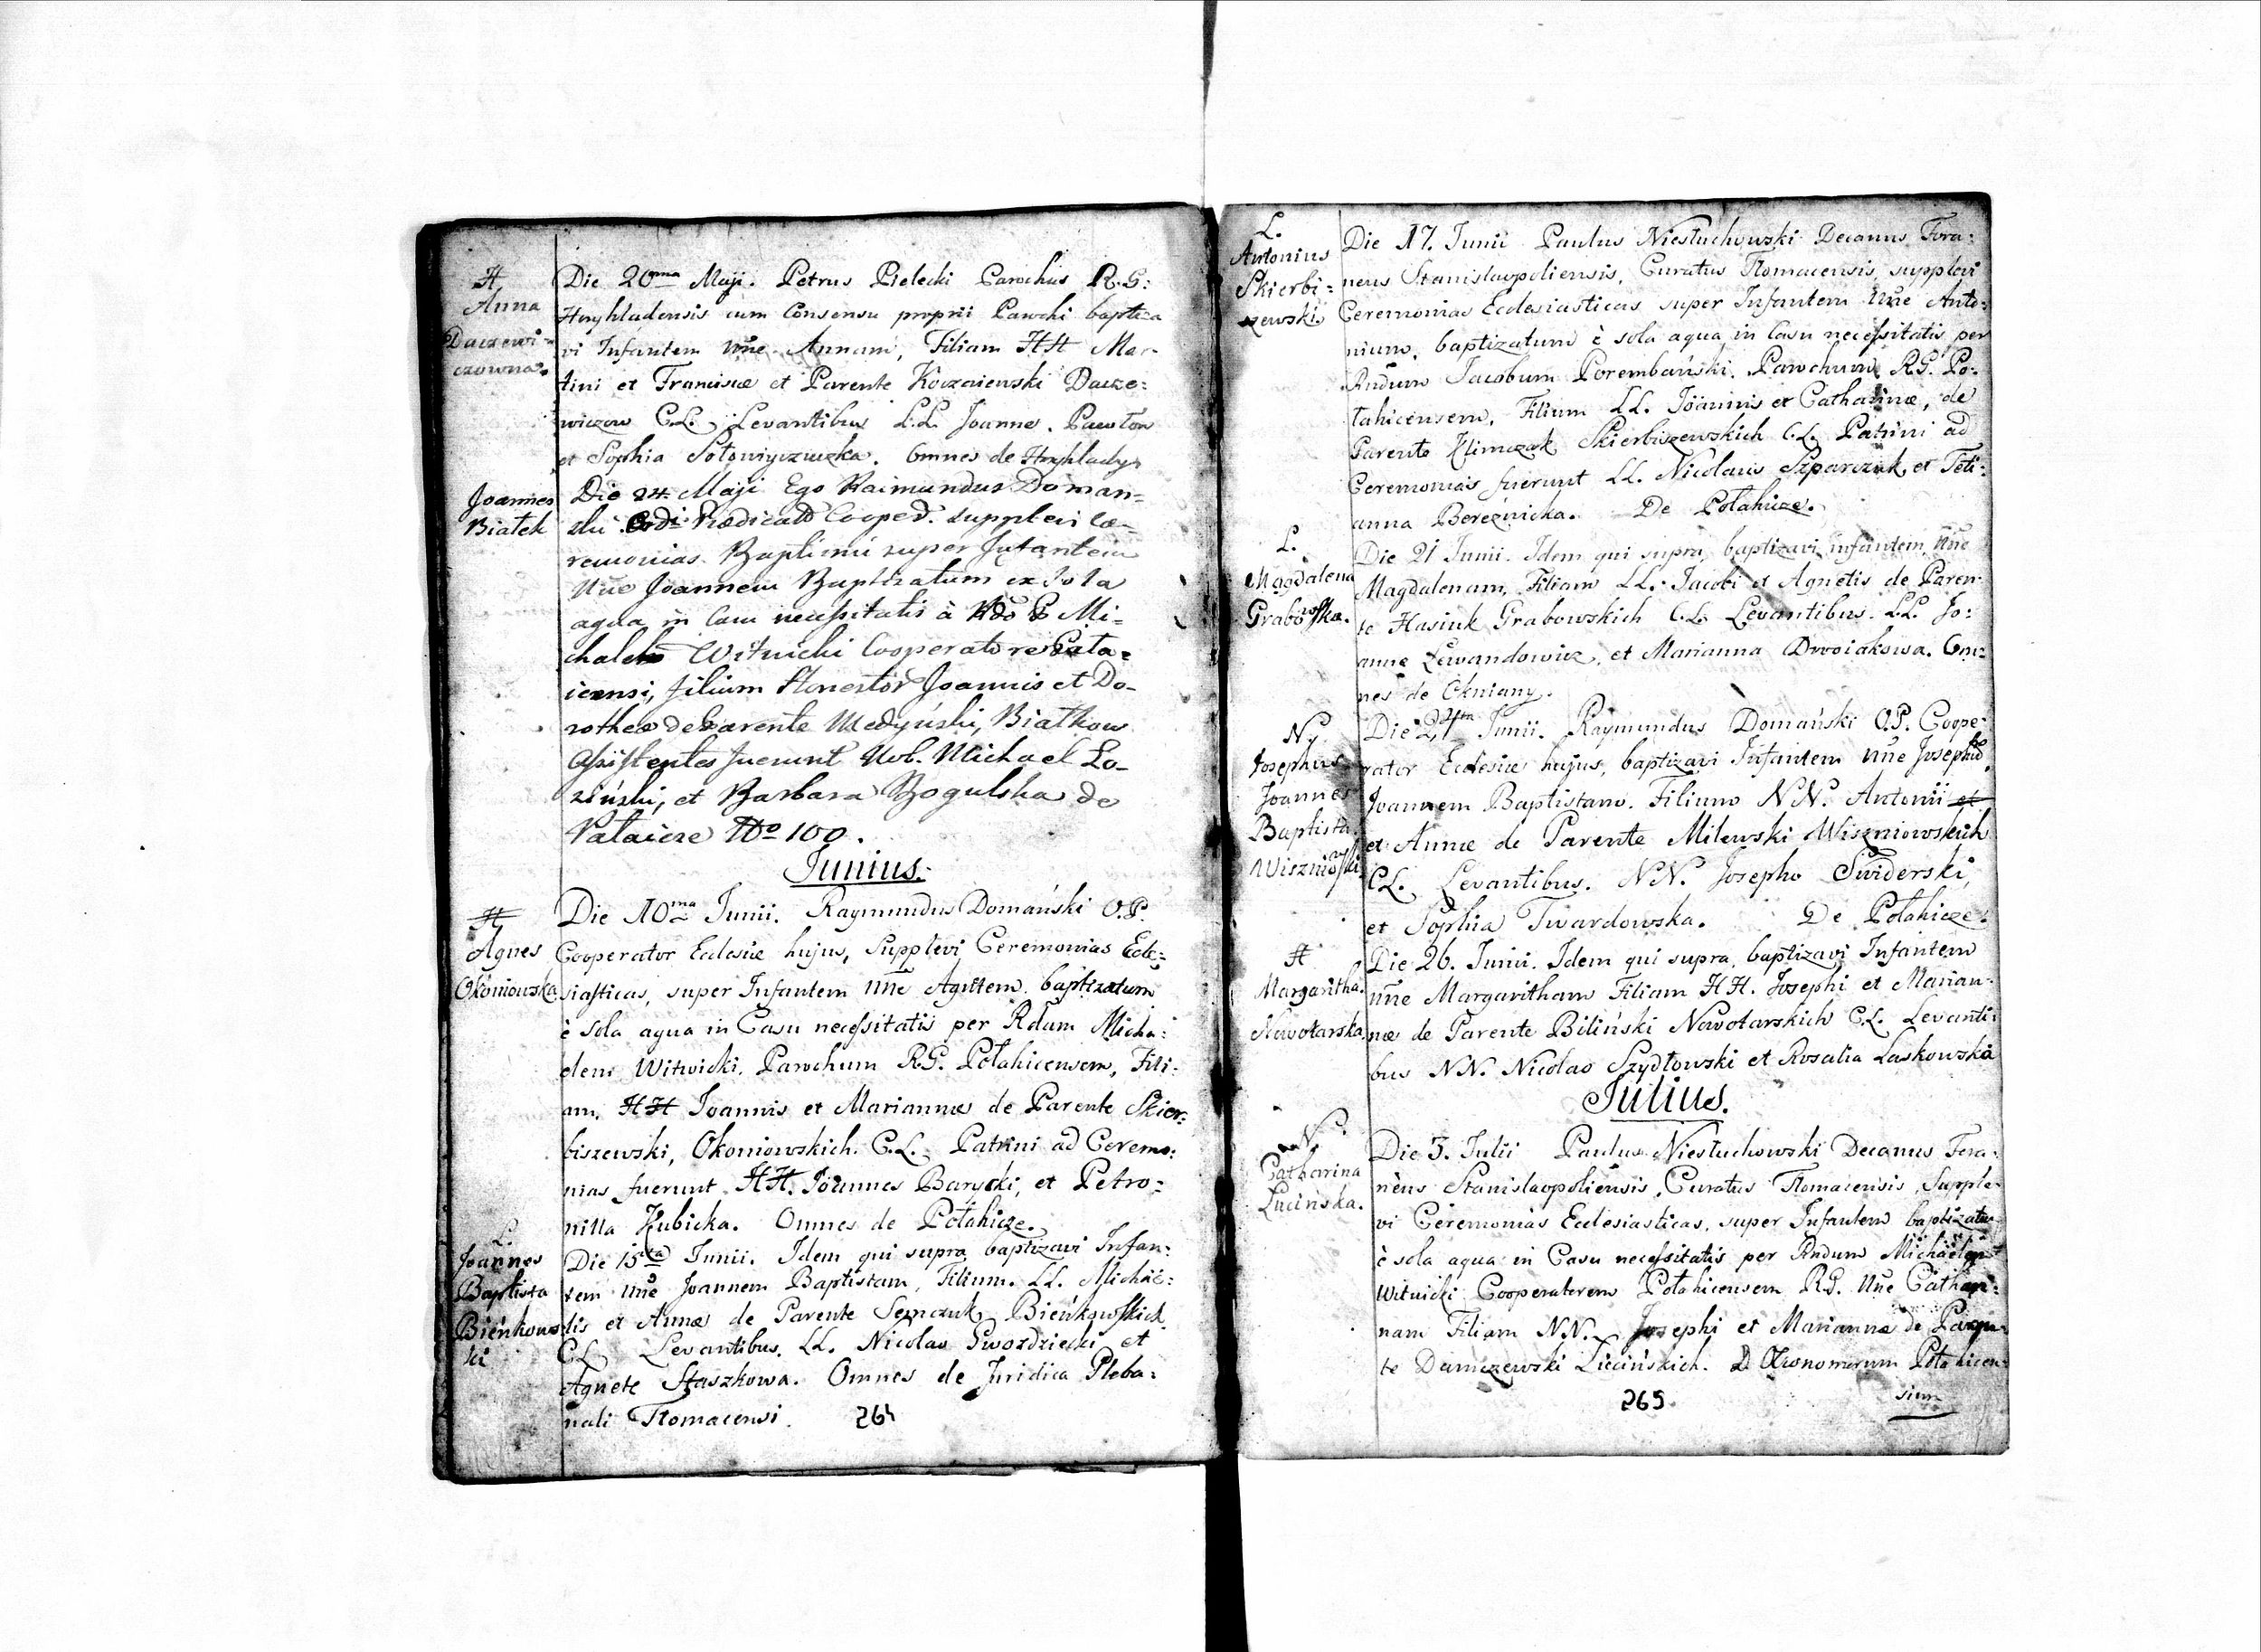 H
Anna
Daczewi-
czowna.
Die 20ma Maji. Petrus Pielecki Parochus R.G:
Hryhladensis cum Consensu proprii Parochi baptiza
vi Infantem nne Annam, Filiam HH Mar-
tini et Franciscæ et Parente Dacze:
wiczow C.L. Levantibus L.L. Joanne
et Sophia. Omnes de Hryhlady
Joannes
Białek
Die 24 Maji Ego Raimundus Doman=
ski Cooper. supplevi Cæ-
remonias Baptismi super Infantem
Nne Joannem Baptizatum ex sola
aqua in Casu necessitatis à Rdo Mi=
chaele Witwicki Cooperatore Pata=
icensi, filium Honestor Joannis et Do-
rotheæ de Parente Medyński, Białkow
Assistentes fuerunt Nob. Michael Ło-
ziński, et Barbara Bogulska de
Pataicze No 100.
Junius.
H
Agnes
Okoniowska
Die 10ma Junii. Raymundus Domański O.P.
Cooperator Ecclesiæ hujus, Supplevi Ceremonias Ecle:
siasticas, super Infantem nne Agnetem baptizatum
è sola aqua in Casu necessitatis per Rdum Micha:
elem Witwicki, Parochum R.G. Potahicensem, Fili:
am, HH Joannis et Mariannæ de Parente Skier:
biszewski, Okoniowskich. C.L. Patrini ad Ceremo:
nias fuerunt HH. Joannes Barycki, et Petro=
nilla Kubicka. Omnes de Potahicze.
L
Joannes
Baptista
Bieńkows
ki
Die 15ta Junii. Idem qui supra baptizavi Infan:
tem nne Joannem Baptistam, Filium. LL. Michaë:
lis et Annæ de Parente Semczuk Bieńkowskich
C.L. Levantibus. LL. Nicolao Gwozdziecki et
Agnete Staszkowa. Omnes de Juridica Pleba:
nali Tłomacensi.
264
L.
Antonius
Skierbi=
szewski.
Die 17. Junii Paulus Niestuchowski Decanus Fora:
neus Stanislaopoliensis, Curatus Tłomacensis, supplevi
Ceremonias Ecclesiasticas super Infantem nne Anto:
nium, baptizatum è sola aqua in Casu necessitatis per
Rndum Jacobum Porembański. Parochum R.G. Po:
tahicensem, Filium LL. Joannis et Catharinæ, de
Parente Klimczak Skierbiszewskich C.L. Patrini ad
Ceremonias fuerunt LL. Nicolaus Szparczuk et Teti:
anna Bereźnicka. De Potahicze.
L.
Magdalena
Grabowska.
Die 21 Junii. Idem qui supra, baptizavi infantem, nne
Magdalenam, Filiam LL. Jacobi et Agnetis de Paren-
te Hasiuk Grabowskich C.L. Levantibus. L.L. Jo:
anne Lewandowicz, et Marianna Dwoiakowa. Om:
nes de Okniany.
N.
Josephus
Joannes
Baptista
Wiszniowski
Die 24ta Junii. Raymundus Domański O.P. Coope:
rator Ecclesiæ hujus, baptizavi Infantem nne Josephū
Joannem Baptistam. Filium NN. Antonii et
et Annæ de Parente Milewski Wiszniowskich
C.L. Levantibus. NN. Josepho Swiderski,
et Sophia Twardowska. De Potahicze.
H
Margaritha.
Nowotarska.
Die 26. Junii. Idem qui supra, baptizavi Infantem
nne Margaritham Filiam HH. Josephi et Marian:
næ de Parente Biliński Nowotarskich C.L. Levanti:
bus NN. Nicolao Szydłowski et Rosalia Laskowska
Julius.
N.
Catharina
Lucińska.
Die 3. Julii Paulus Niestuchowski Decanus Fora:
nėus Stanislaopoliensis, Curatus Tłomacensis, Supple:
vi Ceremonias Ecclesiasticas, super Infantem baptizatum
è sola aqua in Casu necessitatis per Rndum Michäelem
Witwicki Cooperatorem Potahicensem R.G. Nne Cathari:
nam Filiam NN. Josephi et Mariannæ de Paren:
te Damczewski Licińskich. Œkonomorum Potahicen:
sium
265.